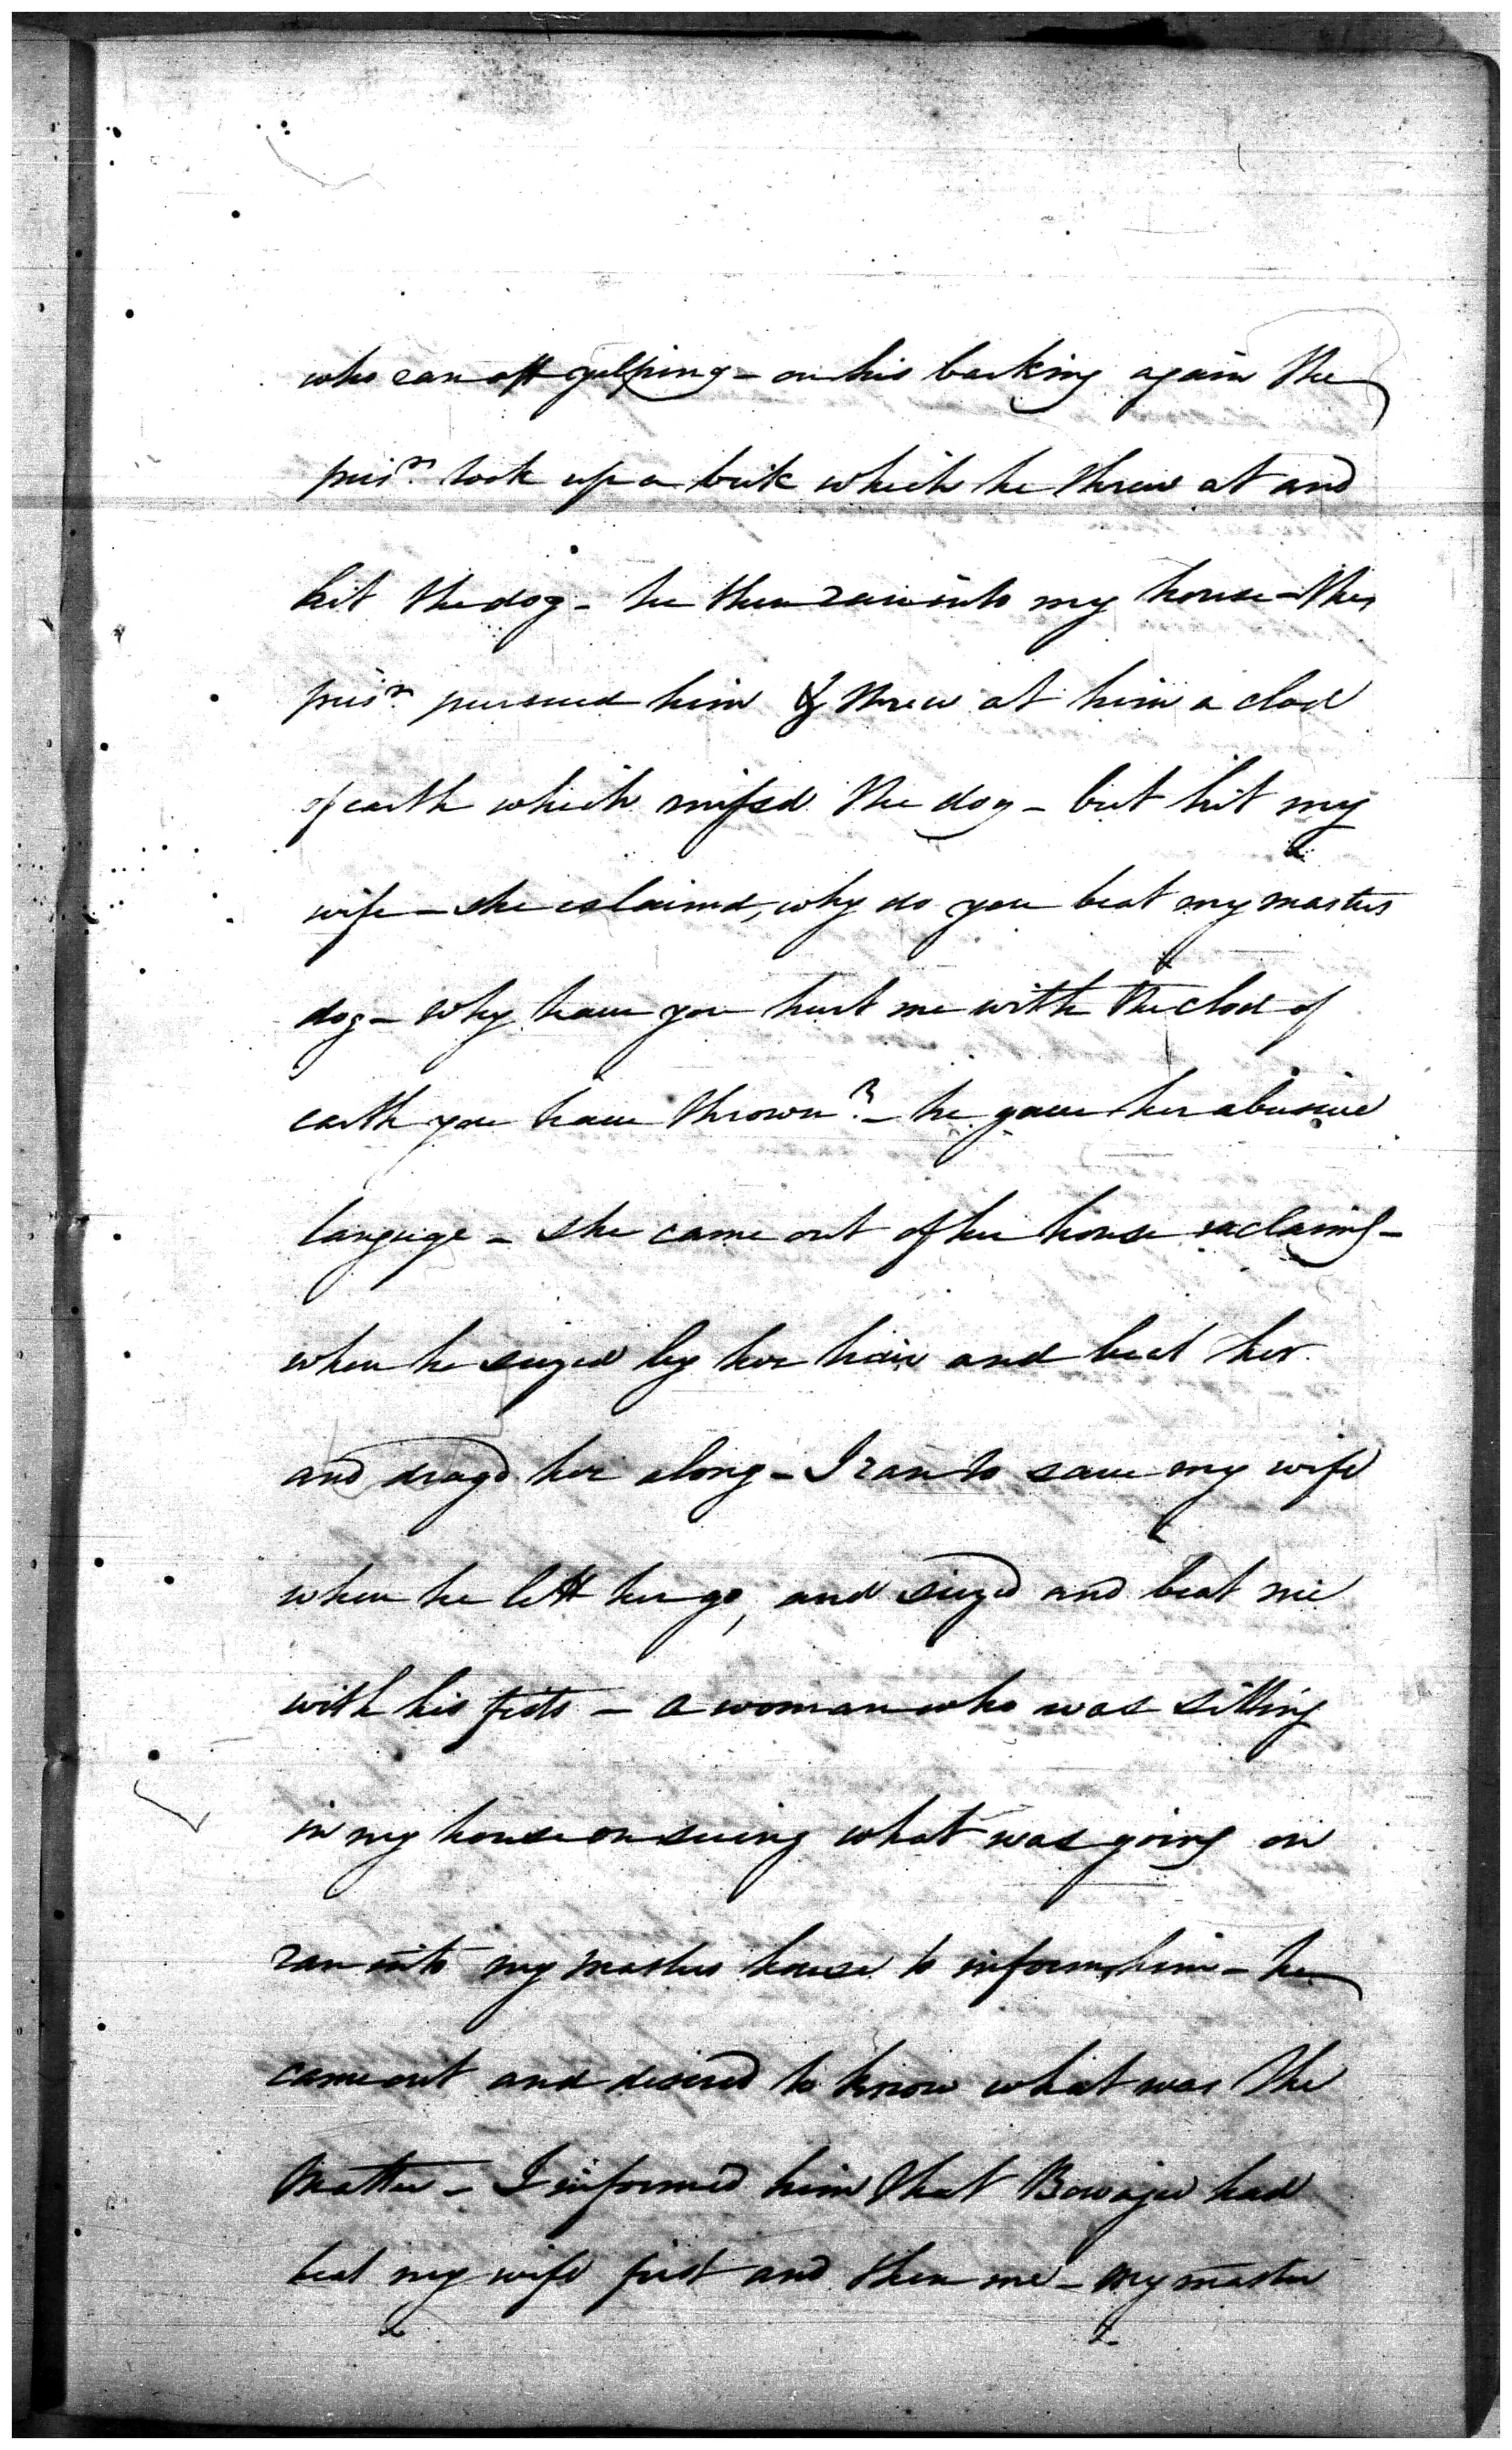 who ran off yelping - on his barking again the
prisr. took up a brick which he threw at and
hit the dog - he then ran into my house - the
prisr. pursued him & threw at him a clod
of earth which missed the dog - but hit my
wife - she exlaimd, why do you beat my masters
dog - why have you hurt me with the clod of
earth you have thrown? - he gave her abusive
languige - she came out of her house exclaimg -
when he seized by her hair and beat her
and dragd her along - I ran to save my wife
when he lett her go, and siezed and beat me
with his fists - a woman who was sitting
in my house on seeing what was going on
ran into my masters house to inform him - he
came out and desired to know what was the
matter - I informed him that Bowajee had
beat my wife first and then me - my master